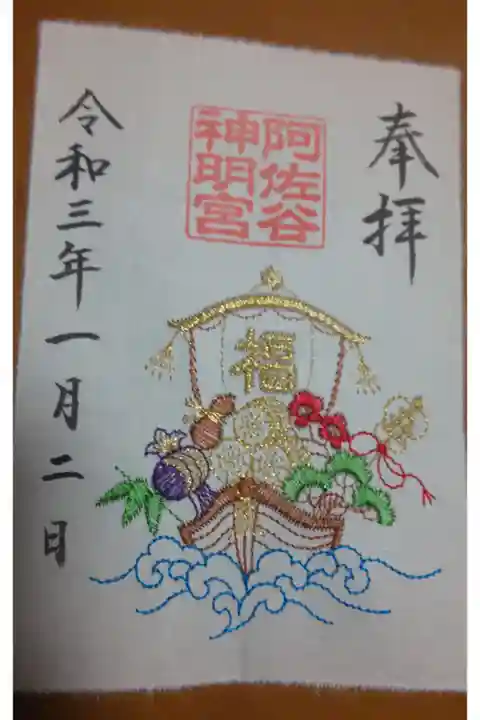 奉拝
阿佐谷
神明宮
福
令和三年一月二日